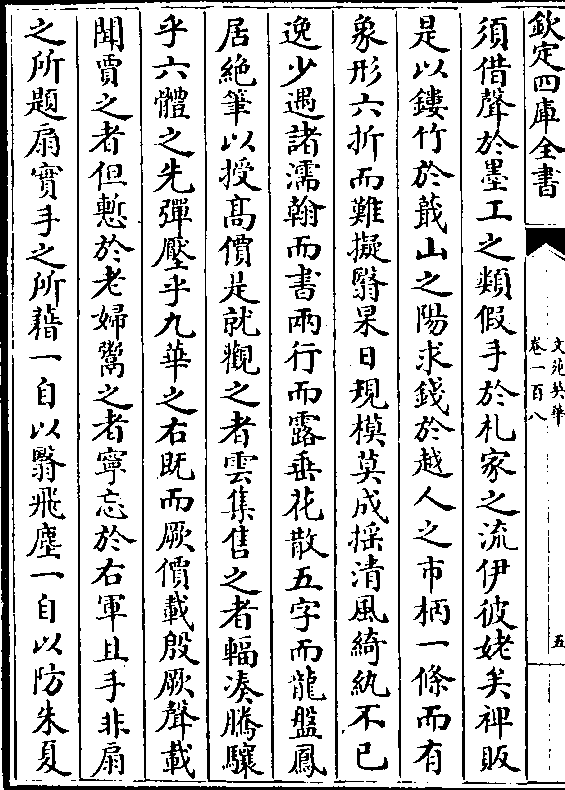 欽定四庫全書
文苑英華
卷一百八
五
須借聲於墨工之類假手於札家之流伊彼姥矣裨販
是以鏤竹於蕺山之陽求錢於越人之市柄一條而有
象形六折而難擬翳杲日現模莫成揺清風綺紈不已
逸少遇諸濡翰而書兩行而露垂花散五字而龍盤鳳
居絶筆以授髙價是就觀之者雲集售之者輻凑騰驤
乎六體之先彈壓乎九華之右既而厥價載殷厥聲載
聞賈之者但慙於老婦鬻之者寧忘於右軍且手非扇
之所題扇實手之所藉一自以翳飛塵一自以防朱夏